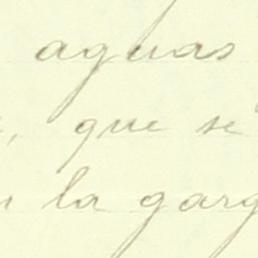 aguas
, que se
la garg